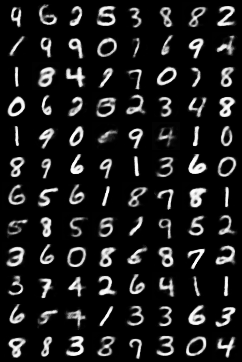 9 6 2 5 3 8 8 2
1 9 9 0 7 6 9 4
1 8 4 7 7 0 7 8
0 6 2 5 2 3 4 8
1 9 0 9 4 1 0
8 9 6 9 1 3 6 0
6 5 6 1 8 7 8 1
5 8 5 5 1 9 5 2
3 6 0 8 6 8 7 2
3 7 4 2 6 4 1 1
6 5 7 1 3 3 6 3
8 8 3 8 7 3 0 4